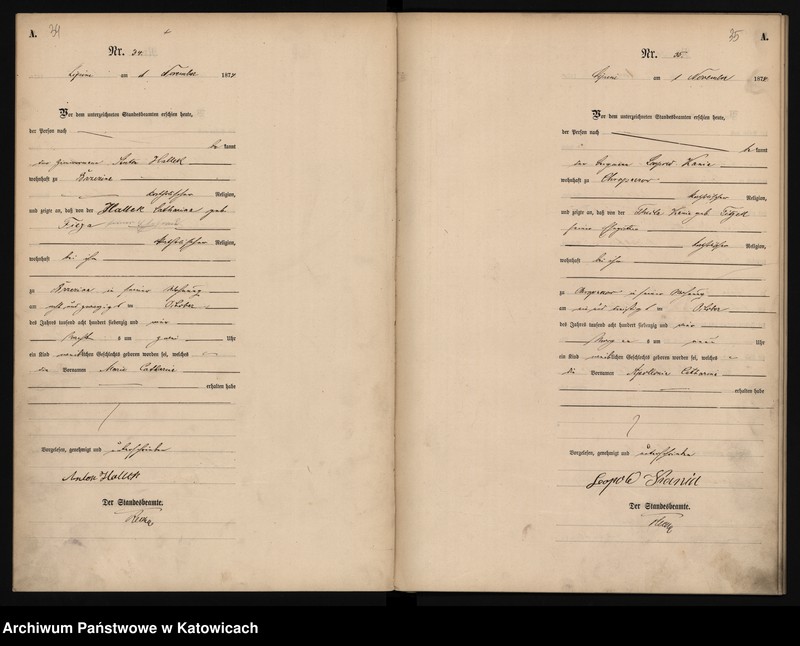 A. 34
Nr. 34.
Lipine am 1 November 1874
Vor dem unterzeichneten Standesbeamten erschien heute,
der Person nach
be kannt
der Anton Hallek
wohnhaft zu
katholischer Religion,
und zeigte an, daß von der Hallek Catharine geb
katholischer Religion,
wohnhaft bei ihm
zu in seiner Wohnung
am acht und zwanzigsten October
des Jahres tausend acht hundert siebenzig und vier
Nachts um zwei Uhr
ein Kind weiblichen Geschlechts geboren worden sei, welches
die Vornamen Marie Catharine
erhalten habe
Vorgelesen, genehmigt und unterschrieben
Anton Hallek
Der Standesbeamte.
35 A.
Nr. 35.
Lipine am 1 November 1874
Vor dem unterzeichneten Standesbeamten erschien heute,
der Person nach
be kannt
der Leopold Kania
wohnhaft zu Chropaczow
katholischer Religion,
und zeigte an, daß von der Thecla Kania geb
seiner Ehegattin
katholischer Religion,
wohnhaft bei ihm
zu Chropaczow in seiner Wohnung
am ein und dreißigsten October
des Jahres tausend acht hundert siebenzig und vier
um Uhr
ein Kind weiblichen Geschlechts geboren worden sei, welches
die Vornamen Apollonia Catharine
erhalten habe
Vorgelesen, genehmigt und unterschrieben
Leopold Kania
Der Standesbeamte.
Archiwum Państwowe w Katowicach